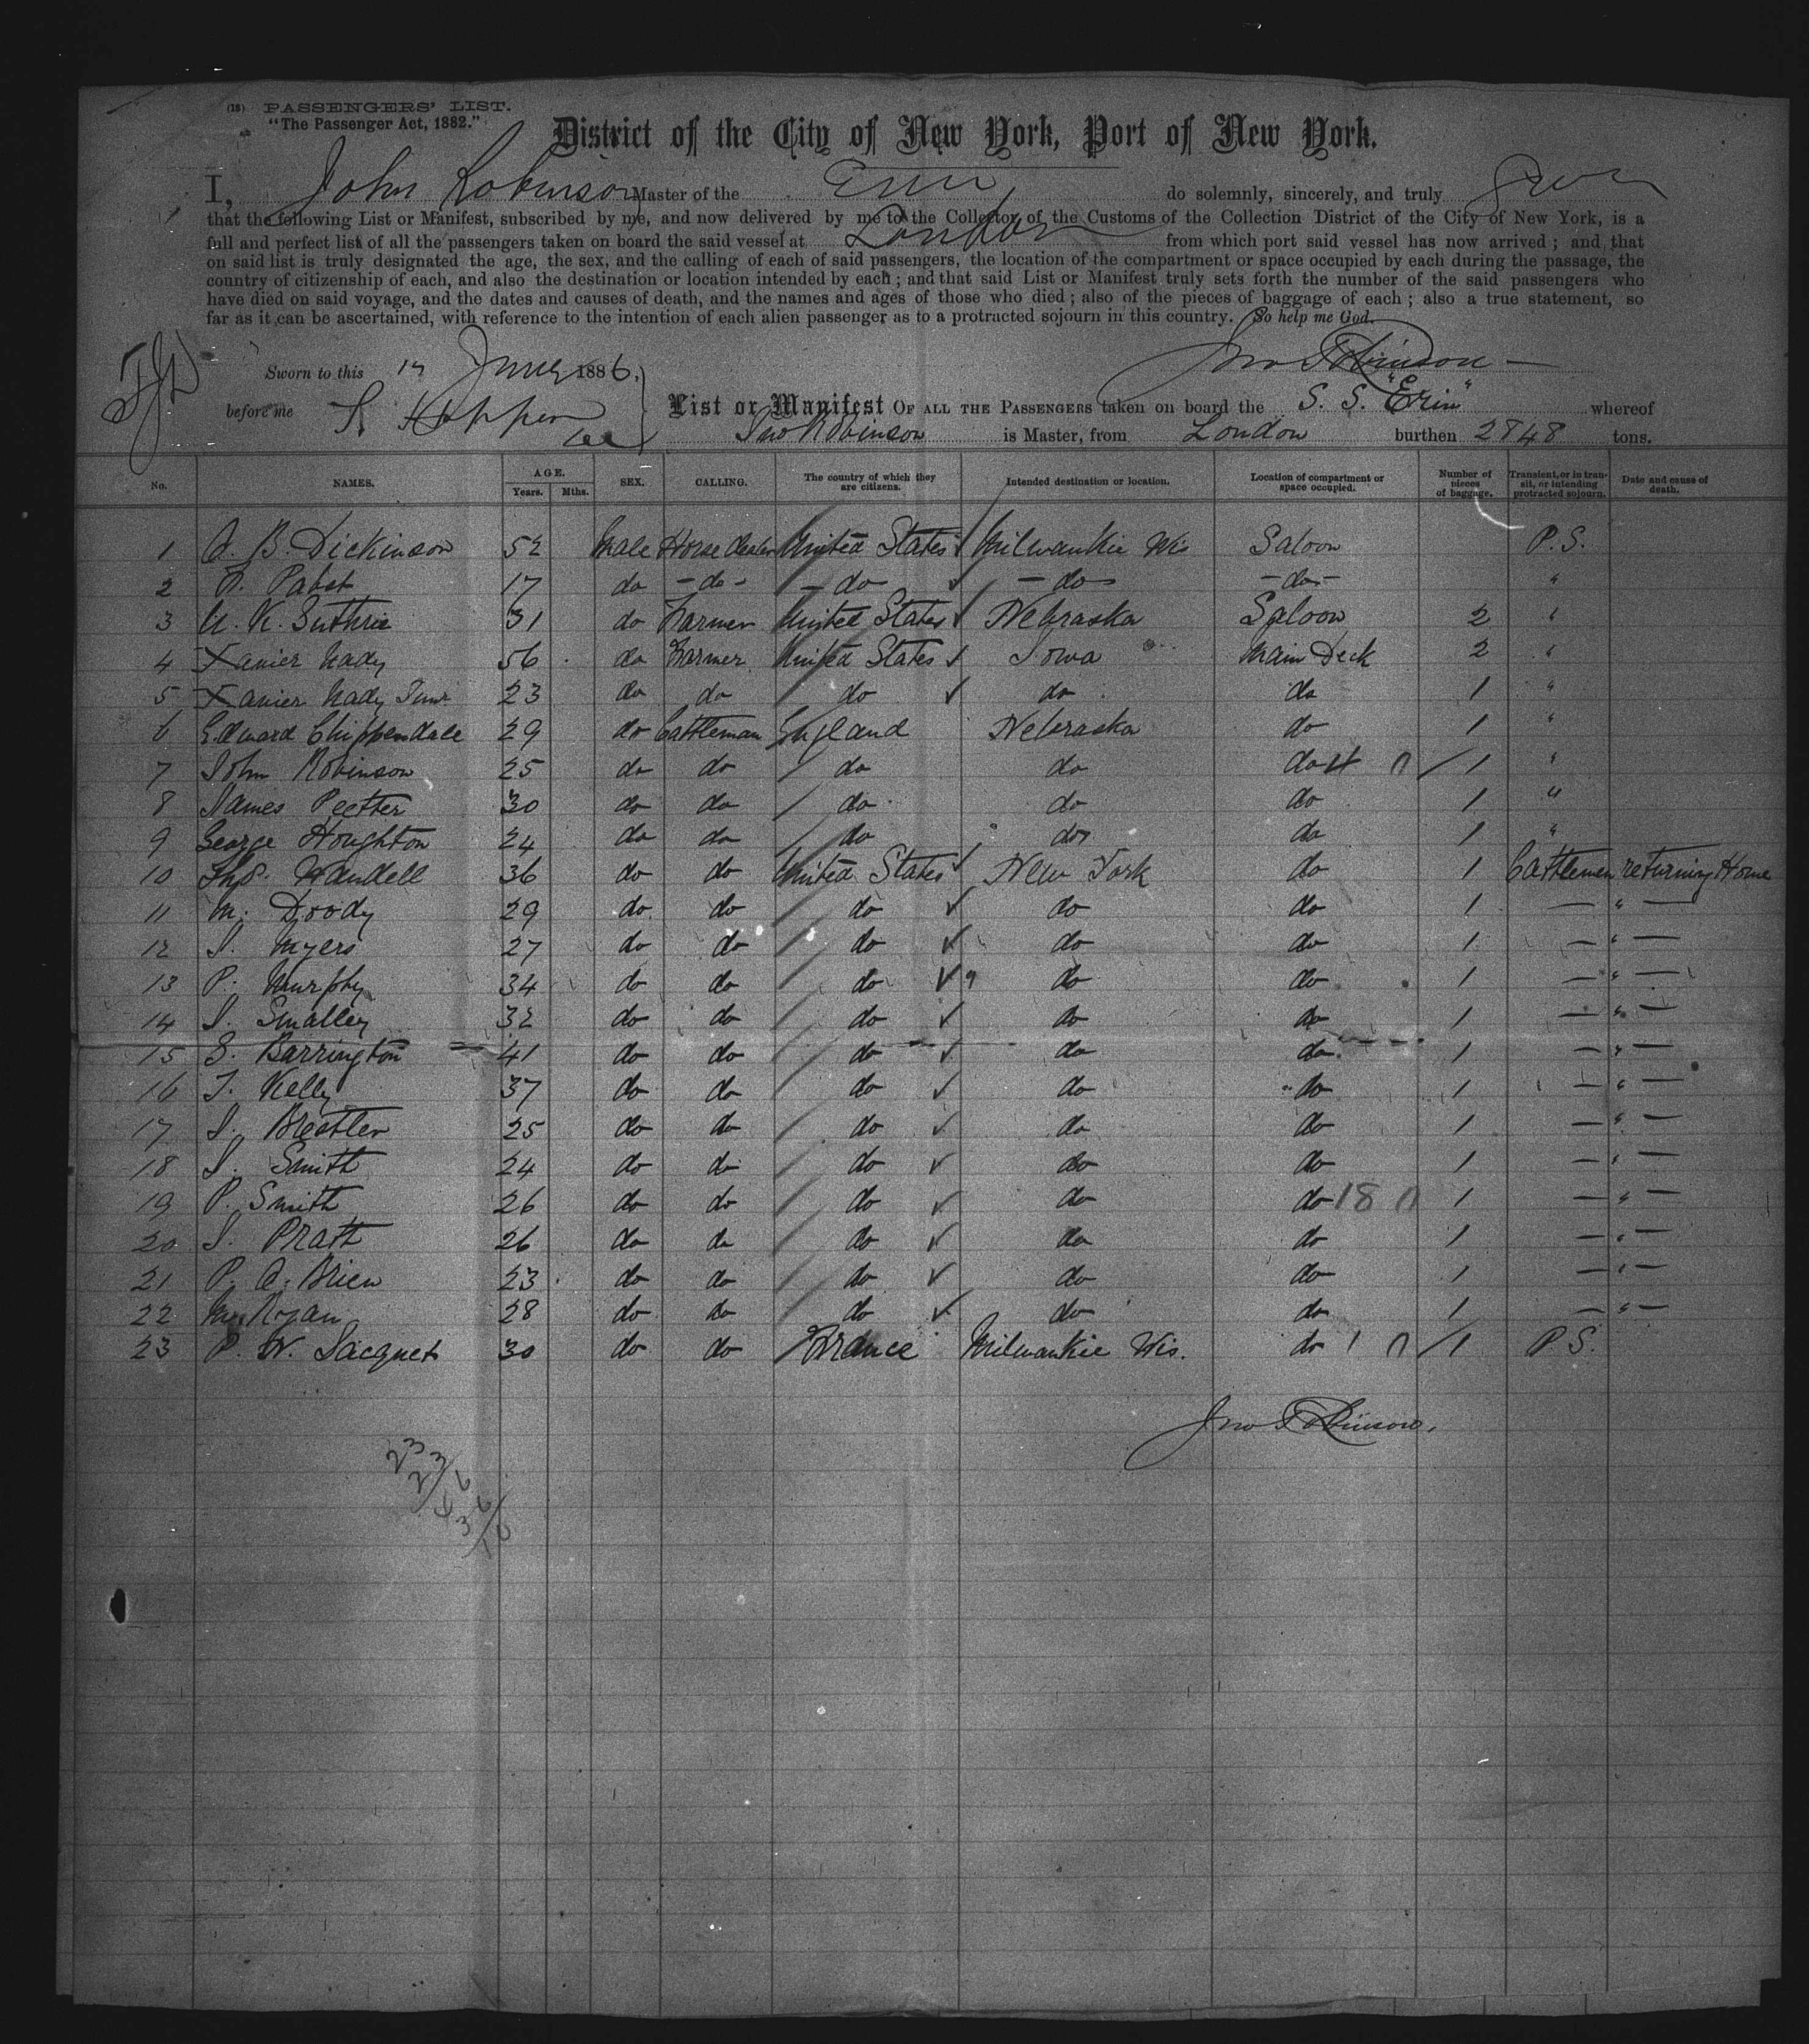 (18) PASSENGERS' LIST.
"The Passenger Act, 1882."
District of the City of New York, Port of New York.
I, John Robinson Master of the Erin do solemnly, sincerely, and truly swear
that the following List or Manifest, subscribed by me, and now delivered by me to the Collector of the Customs of the Collection District of the City of New York, is a
full and perfect list of all the passengers taken on board the said vessel at London from which port said vessel has now arrived; and that
on said list is truly designated the age, the sex, and the calling of each of said passengers, the location of the compartment or space occupied by each during the passage, the
country of citizenship of each, and also the destination or location intended by each; and that said List or Manifest truly sets forth the number of the said passengers who
have died on said voyage, and the dates and causes of death, and the names and ages of those who died; also of the pieces of baggage of each; also a true statement, so
far as it can be ascertained, with reference to the intention of each alien passenger as to a protracted sojourn in this country. So help me God.
Jno Robinson
Sworn to this June 1886,
before me
List or Manifest OF ALL THE PASSENGERS taken on board the S. S. "Erin" whereof
Jno Robinson is Master, from London burthen 2848 tons.
No. NAMES. AGE. Years. Mths. SEX. CALLING. The country of which they are citizens. Intended destination or location. Location of compartment or space occupied. Number of pieces of baggage. Transient, or in transit, or intending protracted sojourn. Date and cause of death.
1 A. B. Dickinson 52 Male Horse dealer United States Milwaukie Wis Saloon P.S.
2 Pabst 17 do - do - - do - do - do - "
3 U. K. Guthrie 31 do Farmer United States Nebraska Saloon 2 "
4 Xavier Nady 56 do Farmer United States Iowa Main Deck 2 "
5 Xavier Nady Junr 23 do do do do do 1 "
6 Edward Chippendale 29 do Cattleman England Nebraska do 1 "
7 John Robinson 25 do do do do do 4 1 "
8 James Peetter 30 do do do do do 1 "
9 George Houghton 24 do do do do do 1 "
10 Thos. Wandell 36 do do United States New York do 1 Cattlemen returning Home
11 M. Doody 29 do do do do do 1 — " —
12 J. Myers 27 do do do do do 1 — " —
13 P. Murphy 34 do do do do do 1 — " —
14 J. Smalley 32 do do do do do 1 — " —
15 S. Barrington 41 do do do do do 1 — " —
16 T. Kelly 37 do do do do do 1 — " —
17 J. Brestler 25 do do do do do 1 — " —
18 J. Smith 24 do do do do do 1 — " —
19 P. Smith 26 do do do do do 18 1 — " —
20 J. Pratt 26 do do do do do 1 — " —
21 P. O. Brien 23 do do do do do 1 — " —
22 M. Ryan 28 do do do do do 1 — " —
23 P. W. Jacquet 30 do do France Milwaukie Wis. do 1 1 P S.
Jno Robinson.